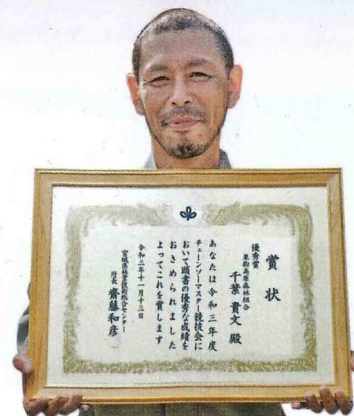 賞状
優秀賞
栗駒高原森林組合
千葉貴文殿
あなたは令和三年度
チェーンソーマスター競技会に
おいて頭書の優秀な成績を
おさめられました
よってこれを賞します
令和三年十一月十三日
宮城県林業技術総合センター
所長 齋藤和彦